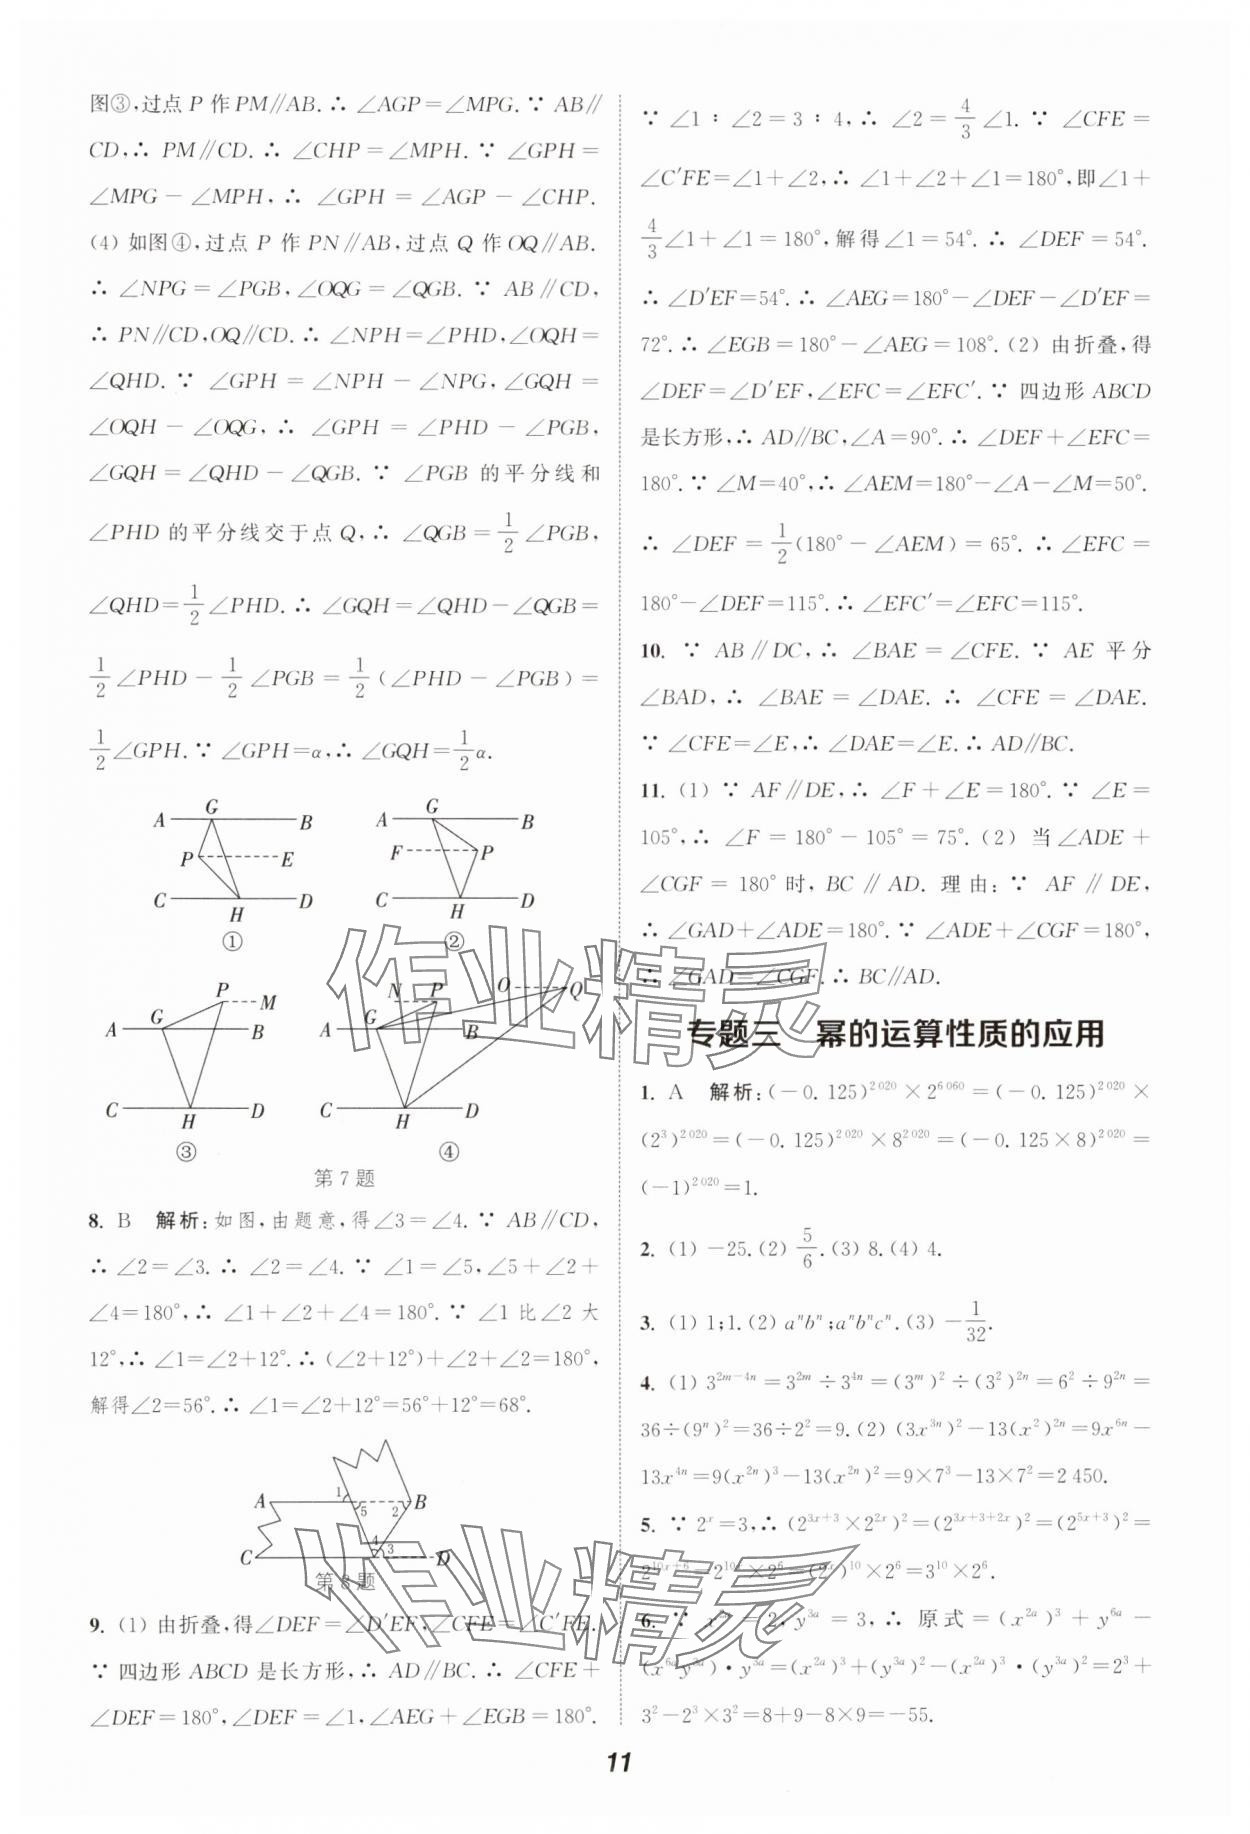 图③,过点 P 作 PM∥AB. ∴ ∠AGP=∠MPG. ∵ AB∥
CD,∴ PM∥CD. ∴ ∠CHP=∠MPH. ∵ ∠GPH=
∠MPG-∠MPH,∴ ∠GPH=∠AGP-∠CHP.
(4) 如图④,过点 P 作 PN∥AB,过点 Q 作 OQ∥AB.
∴ ∠NPG=∠PGB,∠OQG=∠QGB. ∵ AB∥CD,
∴ PN∥CD,OQ∥CD. ∴ ∠NPH=∠PHD,∠OQH=
∠QHD. ∵ ∠GPH=∠NPH-∠NPG,∠GQH=
∠OQH-∠OQG,∴ ∠GPH=∠PHD-∠PGB,
∠GQH=∠QHD-∠QGB. ∵ ∠PGB 的平分线和
∠PHD 的平分线交于点 Q,∴ ∠QGB=1/2∠PGB,
∠QHD=1/2∠PHD. ∴ ∠GQH=∠QHD-∠QGB=
1/2∠PHD-1/2∠PGB=1/2(∠PHD-∠PGB)=
1/2∠GPH. ∵ ∠GPH=α,∴ ∠GQH=1/2α.
A G B P E C H D ①
A G B F P C H D ②
P M A G B C H D ③
N P O Q A G B C H D ④
第 7 题
8. B 解析:如图,由题意,得∠3=∠4. ∵ AB∥CD,
∴ ∠2=∠3. ∴ ∠2=∠4. ∵ ∠1=∠5,∠5+∠2+
∠4=180°,∴ ∠1+∠2+∠4=180°. ∵ ∠1 比∠2 大
12°,∴ ∠1=∠2+12°. ∴ (∠2+12°)+∠2+∠2=180°,
解得∠2=56°. ∴ ∠1=∠2+12°=56°+12°=68°.
A 1 5 2 B
C 4 3 D
第 8 题
9. (1) 由折叠,得∠DEF=∠D′EF,∠CFE=∠C′FE.
∵ 四边形 ABCD 是长方形,∴ AD∥BC. ∴ ∠CFE+
∠DEF=180°,∠DEF=∠1,∠AEG+∠EGB=180°.
∵ ∠1∶∠2=3∶4,∴ ∠2=4/3∠1. ∵ ∠CFE=
∠C′FE=∠1+∠2,∴ ∠1+∠2+∠1=180°,即∠1+
4/3∠1+∠1=180°,解得∠1=54°. ∴ ∠DEF=54°.
∴ ∠D′EF=54°. ∴ ∠AEG=180°-∠DEF-∠D′EF=
72°. ∴ ∠EGB=180°-∠AEG=108°. (2) 由折叠,得
∠DEF=∠D′EF,∠EFC=∠EFC′. ∵ 四边形 ABCD
是长方形,∴ AD∥BC,∠A=90°. ∴ ∠DEF+∠EFC=
180°. ∵ ∠M=40°,∴ ∠AEM=180°-∠A-∠M=50°.
∴ ∠DEF=1/2(180°-∠AEM)=65°. ∴ ∠EFC=
180°-∠DEF=115°. ∴ ∠EFC′=∠EFC=115°.
10. ∵ AB∥DC,∴ ∠BAE=∠CFE. ∵ AE 平分
∠BAD,∴ ∠BAE=∠DAE. ∴ ∠CFE=∠DAE.
∵ ∠CFE=∠E,∴ ∠DAE=∠E. ∴ AD∥BC.
11. (1) ∵ AF∥DE,∴ ∠F+∠E=180°. ∵ ∠E=
105°,∴ ∠F=180°-105°=75°. (2) 当∠ADE+
∠CGF=180°时,BC∥AD. 理由:∵ AF∥DE,
∴ ∠GAD+∠ADE=180°. ∵ ∠ADE+∠CGF=180°,
∴ ∠GAD=∠CGF. ∴ BC∥AD.
专题三 幂的运算性质的应用
1. A 解析:(-0.125)^{2 020}×2^{6 060}=(-0.125)^{2 020}×
(2³)^{2 020}=(-0.125)^{2 020}×8^{2 020}=(-0.125×8)^{2 020}=
(-1)^{2 020}=1.
2. (1) -25. (2) 5/6. (3) 8. (4) 4.
3. (1) 1;1. (2) aⁿbⁿ;aⁿbⁿcⁿ. (3) -1/32.
4. (1) 3^{2m-4n}=3^{2m}÷3^{4n}=(3^m)²÷(3²)^{2n}=6²÷9^{2n}=
36÷(9ⁿ)²=36÷2²=9. (2) (3x^{3n})²-13(x²)^{2n}=9x^{6n}-
13x^{4n}=9(x^{2n})³-13(x^{2n})²=9×7³-13×7²=2 450.
5. ∵ 2^x=3,∴ (2^{3x+3}×2^{2x})²=(2^{3x+3+2x})²=(2^{5x+3})²=
2^{10x+6}=2^{10x}×2⁶=(2^x)^{10}×2⁶=3^{10}×2⁶.
6. ∵ x^{2a}=2,y^{3a}=3,∴ 原式=(x^{2a})³+y^{6a}-
(x^{6a}y^{3a})·y^{3a}=(x^{2a})³+(y^{3a})²-(x^{2a})³·(y^{3a})²=2³+
3²-2³×3²=8+9-8×9=-55.
11
作业精灵
作业精灵